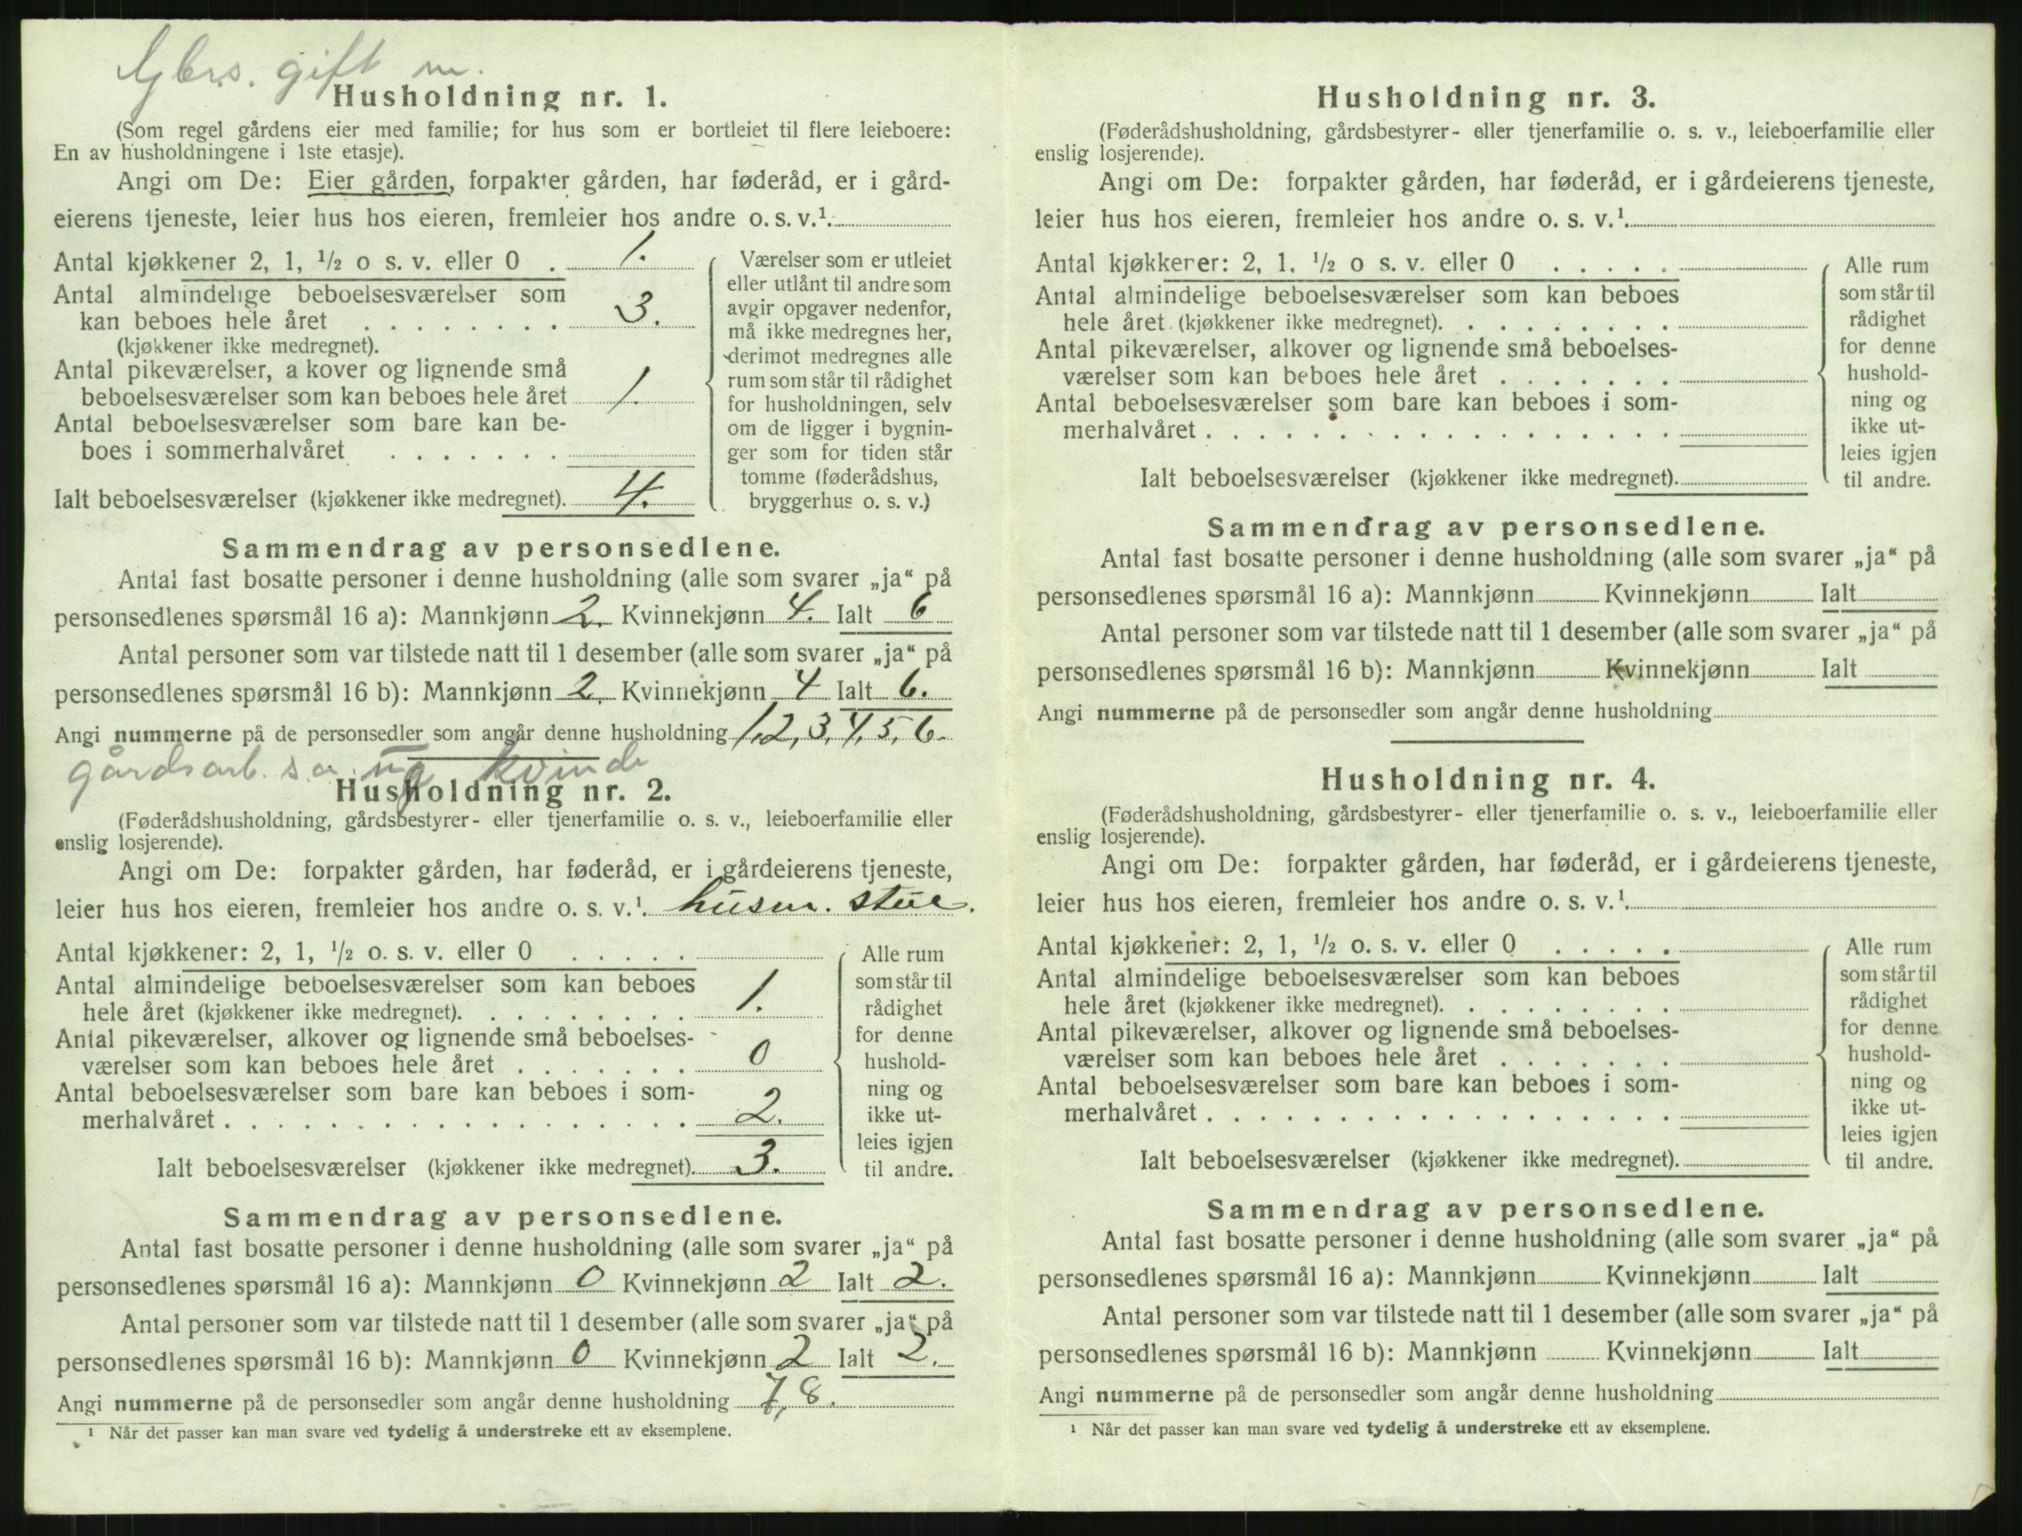 Gbrs. gift m.
Husholdning nr. 1.
(Som regel gårdens eier med familie; for hus som er bortleiet til flere leieboere:
En av husholdningene i 1ste etasje).
Angi om De: Eier gården, forpakter gården, har føderåd, er i gård-
eierens tjeneste, leier hus hos eieren, fremleier hos andre o. s. v.¹.
Antal kjøkkener 2, 1, ½ o s. v. eller 0 . 1.
Antal almindelige beboelsesværelser som
kan beboes hele året . . . . . . . . 3.
(kjøkkener ikke medregnet).
Antal pikeværelser, a kover og lignende små
beboelsesværelser som kan beboes hele året 1.
Antal beboelsesværelser som bare kan be-
boes i sommerhalvåret . . . . . . .
Ialt beboelsesværelser (kjøkkener ikke medregnet). 4.
Værelser som er utleiet
eller utlånt til andre som
avgir opgaver nedenfor,
må ikke medregnes her,
derimot medregnes alle
rum som står til rådighet
for husholdningen, selv
om de ligger i bygnin-
ger som for tiden står
tomme (føderådshus,
bryggerhus o. s. v.)
Sammendrag av personsedlene.
Antal fast bosatte personer i denne husholdning (alle som svarer „ja“ på
personsedlenes spørsmål 16 a): Mannkjønn 2. Kvinnekjønn 4. Ialt 6
Antal personer som var tilstede natt til 1 desember (alle som svarer „ja“ på
personsedlenes spørsmål 16 b): Mannkjønn 2. Kvinnekjønn 4 Ialt 6.
Angi nummerne på de personsedler som angår denne husholdning 1,2,3,4,5,6.
gårdsarb. s.a. ug kvinde
Husholdning nr. 2.
(Føderådshusholdning, gårdsbestyrer- eller tjenerfamilie o. s. v., leieboerfamilie eller
enslig losjerende).
Angi om De: forpakter gården, har føderåd, er i gårdeierens tjeneste,
leier hus hos eieren, fremleier hos andre o. s. v.¹. husm. stue.
Antal kjøkkener: 2, 1, ½ o. s. v. eller 0 . . . . .
Antal almindelige beboelsesværelser som kan beboes
hele året (kjøkkener ikke medregnet). . . . . . . . . 1.
Antal pikeværelser, alkover og lignende små beboelses-
værelser som kan beboes hele året . . . . . . . 0
Antal beboelsesværelser som bare kan beboes i som-
merhalvåret . . . . . . . . . . . . . . . . . . 2.
Ialt beboelsesværelser (kjøkkener ikke medregnet). 3.
Alle rum
som står til
rådighet
for denne
hushold-
ning og
ikke ut-
leies igjen
til andre.
Sammendrag av personsedlene.
Antal fast bosatte personer i denne husholdning (alle som svarer „ja“ på
personsedlenes spørsmål 16 a): Mannkjønn 0 Kvinnekjønn 2 Ialt 2.
Antal personer som var tilstede natt til 1 desember (alle som svarer „ja“ på
personsedlenes spørsmål 16 b): Mannkjønn 0 Kvinnekjønn 2 Ialt 2.
Angi nummerne på de personsedler som angår denne husholdning 7,8.
¹ Når det passer kan man svare ved tydelig å understreke ett av eksemplene.
Husholdning nr. 3.
(Føderådshusholdning, gårdsbestyrer- eller tjenerfamilie o. s. v., leieboerfamilie eller
enslig losjerende).
Angi om De: forpakter gården, har føderåd, er i gårdeierens tjeneste,
leier hus hos eieren, fremleier hos andre o. s. v.¹.
Antal kjøkkener: 2, 1, ½ o s. v. eller 0 . . . . .
Antal almindelige beboelsesværelser som kan beboes
hele året (kjøkkener ikke medregnet). . . . . . . . .
Antal pikeværelser, alkover og lignende små beboelses-
værelser som kan beboes hele året . . . . . . .
Antal beboelsesværelser som bare kan beboes i som-
merhalvåret . . . . . . . . . . . . . . . . . .
Ialt beboelsesværelser (kjøkkener ikke medregnet).
Alle rum
som står til
rådighet
for denne
hushold-
ning og
ikke ut-
leies igjen
til andre.
Sammendrag av personsedlene.
Antal fast bosatte personer i denne husholdning (alle som svarer „ja“ på
personsedlenes spørsmål 16 a): Mannkjønn Kvinnekjønn Ialt
Antal personer som var tilstede natt til 1 desember (alle som svarer „ja“ på
personsedlenes spørsmål 16 b): Mannkjønn Kvinnekjønn Ialt
Angi nummerne på de personsedler som angår denne husholdning
Husholdning nr. 4.
(Føderådshusholdning, gårdsbestyrer- eller tjenerfamilie o. s. v., leieboerfamilie eller
enslig losjerende).
Angi om De: forpakter gården, har føderåd, er i gårdeierens tjeneste,
leier hus hos eieren, fremleier hos andre o. s. v.¹.
Antal kjøkkener: 2, 1, ½ o. s. v. eller 0 . . . . .
Antal almindelige beboelsesværelser som kan beboes
hele året (kjøkkener ikke medregnet). . . . . . . . .
Antal pikeværelser, alkover og lignende små beboelses-
værelser som kan beboes hele året . . . . . . .
Antal beboelsesværelser som bare kan beboes i som-
merhalvåret . . . . . . . . . . . . . . . . . .
Ialt beboelsesværelser (kjøkkener ikke medregnet).
Alle rum
som står til
rådighet
for denne
hushold-
ning og
ikke ut-
leies igjen
til andre.
Sammendrag av personsedlene.
Antal fast bosatte personer i denne husholdning (alle som svarer „ja“ på
personsedlenes spørsmål 16 a): Mannkjønn Kvinnekjønn Ialt
Antal personer som var tilstede natt til 1 desember (alle som svarer „ja“ på
personsedlenes spørsmål 16 b): Mannkjønn Kvinnekjønn Ialt
Angi nummerne på de personsedler som angår denne husholdning
¹ Når det passer kan man svare ved tydelig å understreke ett av eksemplene.